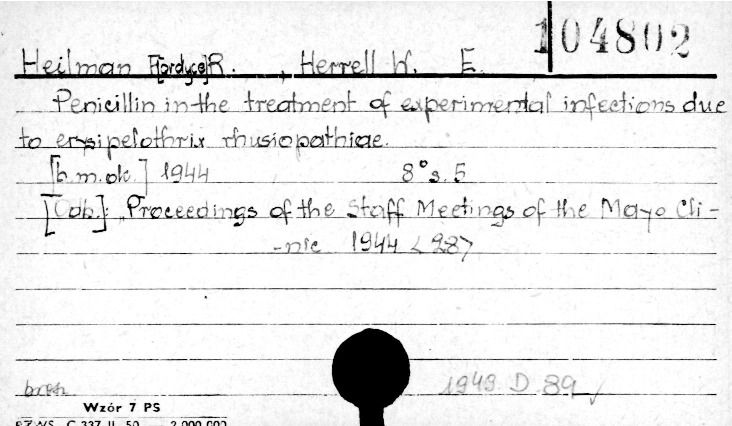 104802
Heilman F[ordyce]R. , Herrell W. E.
Penicillin in the treatment of experimental infections due
to erysipelothrix rhusiopathiae.
[b.m.dr.] 1944 8° s. 5
[Odb.]: „Proceedings of the Staff Meetings of the Mayo Cli-
-nic 1944 <28>
1949 D 89 √
Wzór 7 PS
PZWS C 337 II 50 2.000.000